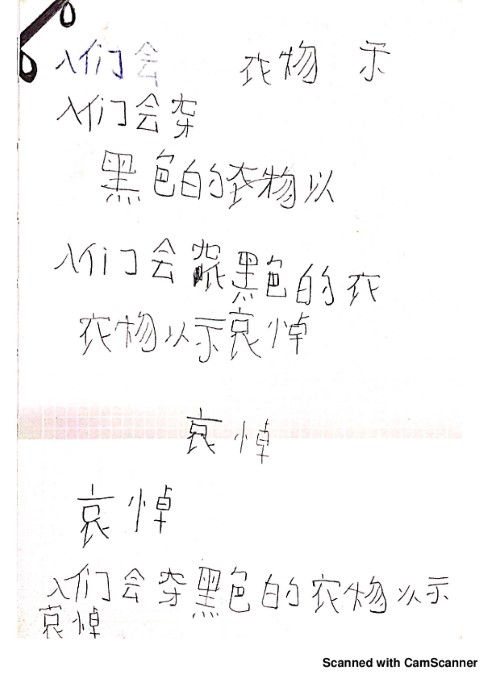 人们会 衣物 示
人们会穿
黑色的衣物以
人们会 黑色的衣
衣物以示哀悼
哀悼
哀悼
人们会穿黑色的衣物以示
哀悼
Scanned with CamScanner